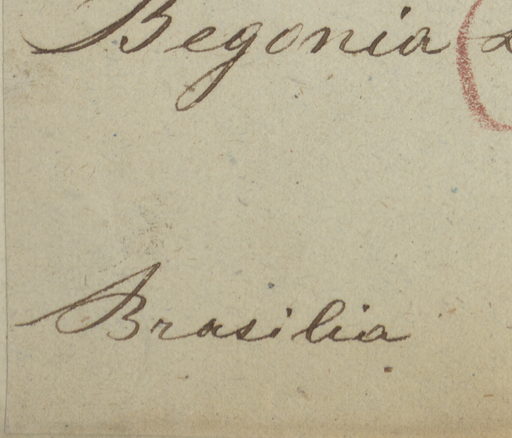 Begonia
Brasilia